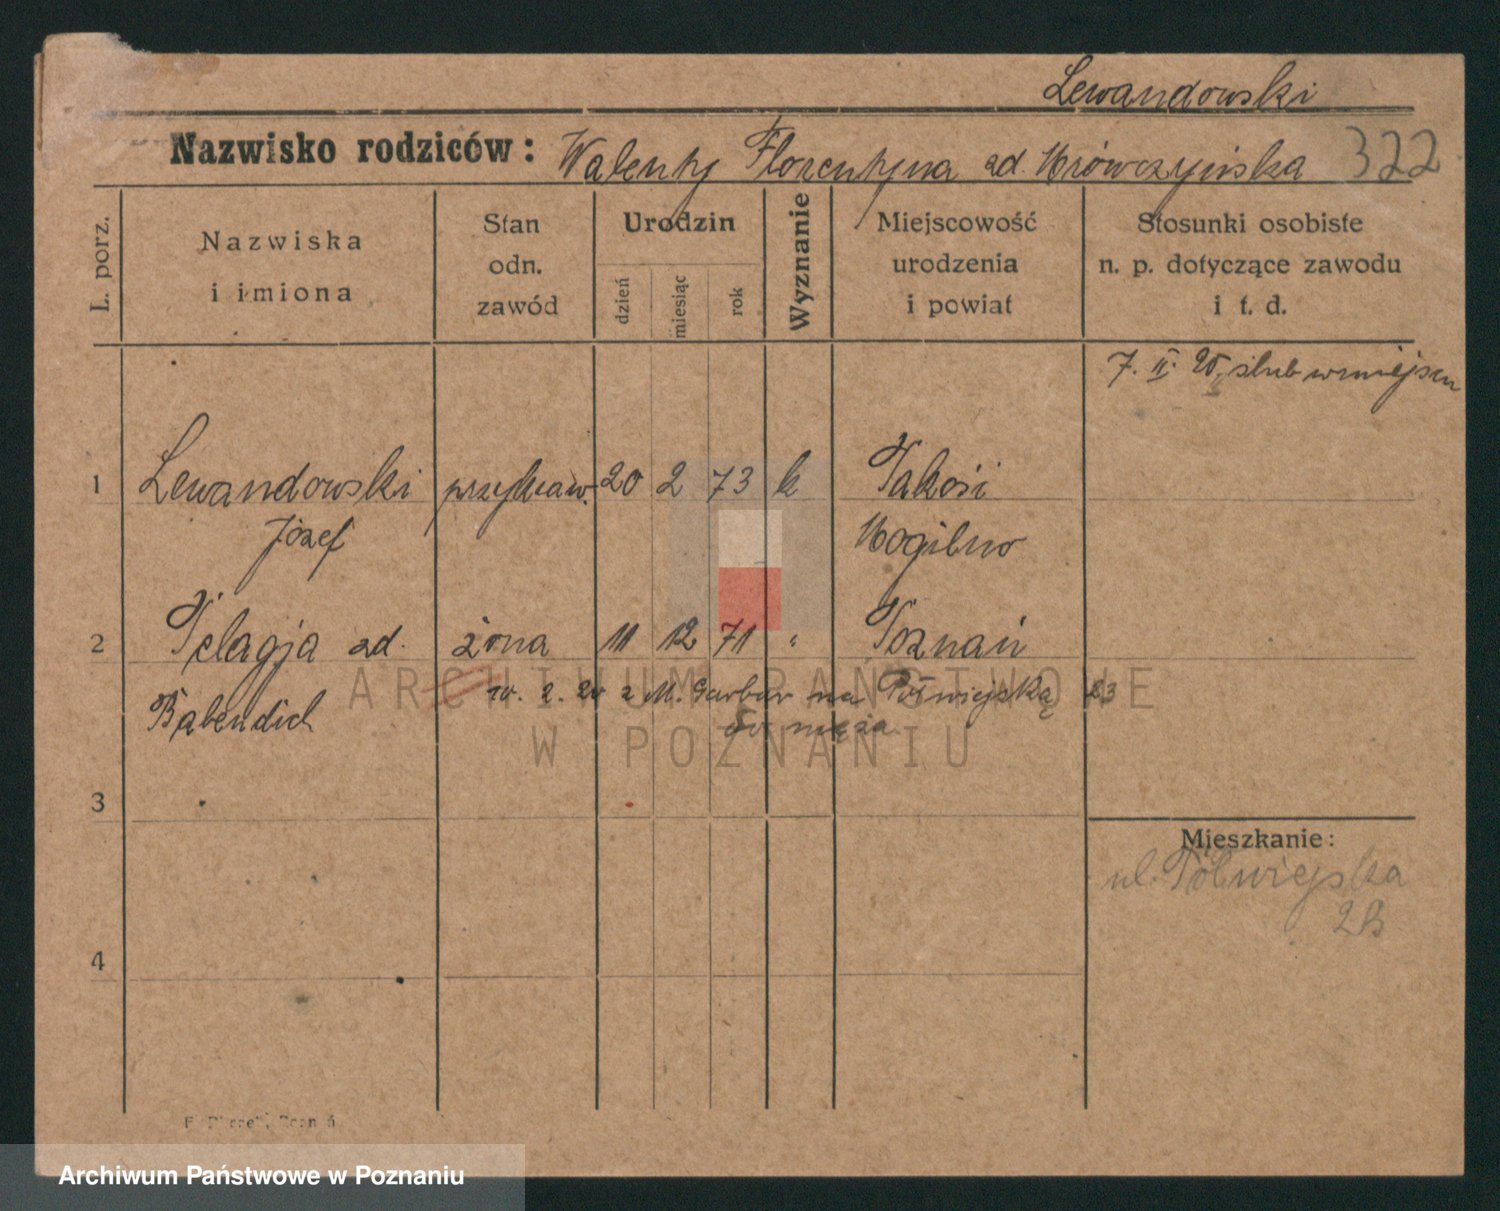 Lewandowski
Nazwisko rodziców: Walenty Florentyna zd. Mrówczyńska 322
L. porz.
Nazwiska i imiona
Stan odn. zawód
Urodzin
dzień
miesiąc
rok
Wyznanie
Miejscowość urodzenia i powiat
Stosunki osobiste n. p. dotyczące zawodu i t. d.
7. II. 20, ślub w miejscu
1 Lewandowski przykraw. 20 2 73 k Pakość
Józef Mogilno
2 Pelagja zd. żona 11 12 71 " Poznań
10. 2. 20 z M. Garbar na Półwiejską 23
Babendich do męża
3
Mieszkanie:
ul. Półwiejska
28
4
Poznań
ARCHIWUM PAŃSTWOWE
W POZNANIU
Archiwum Państwowe w Poznaniu